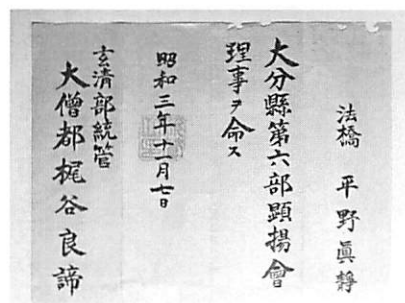 法橋 平野眞靜
大分縣第六部顕揚會
理事ヲ命ス
昭和三年十一月七日
玄清部統管
大僧都梶谷良諦